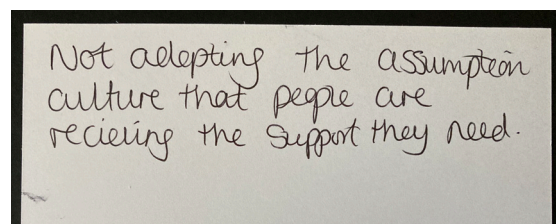 Not adopting the assumption
culture that people are
recieving the support they need.